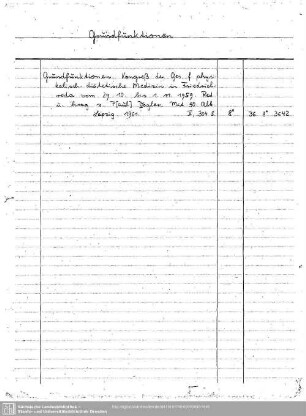 Grundfunktionen
Grundfunktionen. Kongreß der Ges. f. physi-
kalisch-diätetische Medizin in Friedrich-
roda vom 29. 10. bis 1. 11. 1959. Red.
u. hrsg. v. P[aul] Mit 90 Abb.
Leipzig. 1961. X, 304 S. 8° 36. 8° 3642
Sächsische Landesbibliothek -
Staats- und Universitätsbibliothek Dresden